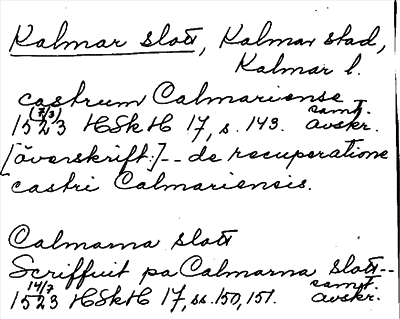 Kalmar slott, Kalmar stad,
Kalmar l.
castrum Calmariense
(7/3) samt.
1523 HSkH 17, s. 143. avskr.
[överskrift:] -- de recuperatione
castri Calmariensis.
Calmarna slott
Scriffuit pa Calmarna slott --
14/7 samt.
1523 HSkH 17, ss. 150, 151. avskr.